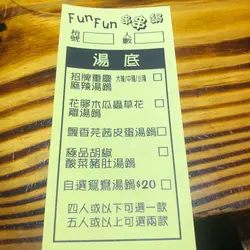 Fun Fun 串串鍋
枱號 人數
湯底
招牌重慶 大辣/中辣/小辣
麻辣湯鍋
花膠木瓜蟲草花
雞湯鍋
飄香芫茜皮蛋湯鍋
極品胡椒
酸菜豬肚湯鍋
自選鴛鴦湯鍋$20
四人或以下可選一款
五人或以上可選兩款